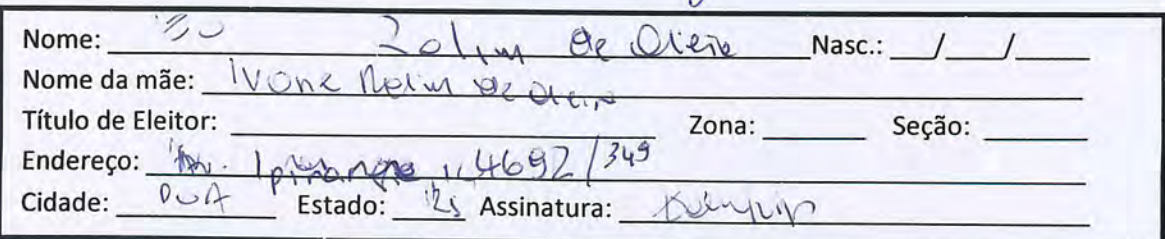 Nome: Rolim de Nasc.: __/__/__
Nome da mãe: Ivone Rolim de
Título de Eleitor: Zona: Seção:
Endereço: Av. Ipiranga, 4692/349
Cidade: POA Estado: RS Assinatura: